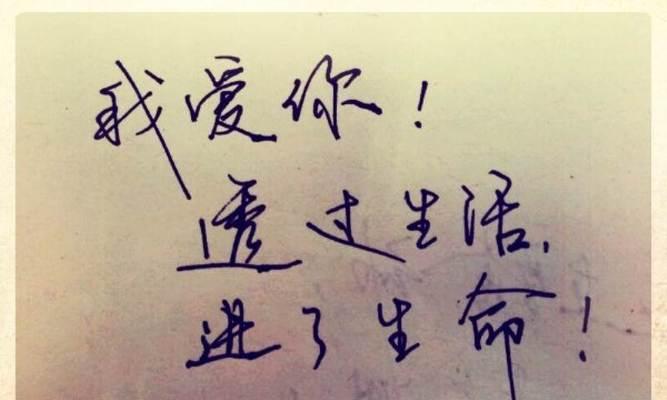 我爱你！
透过生活、
进了生命！